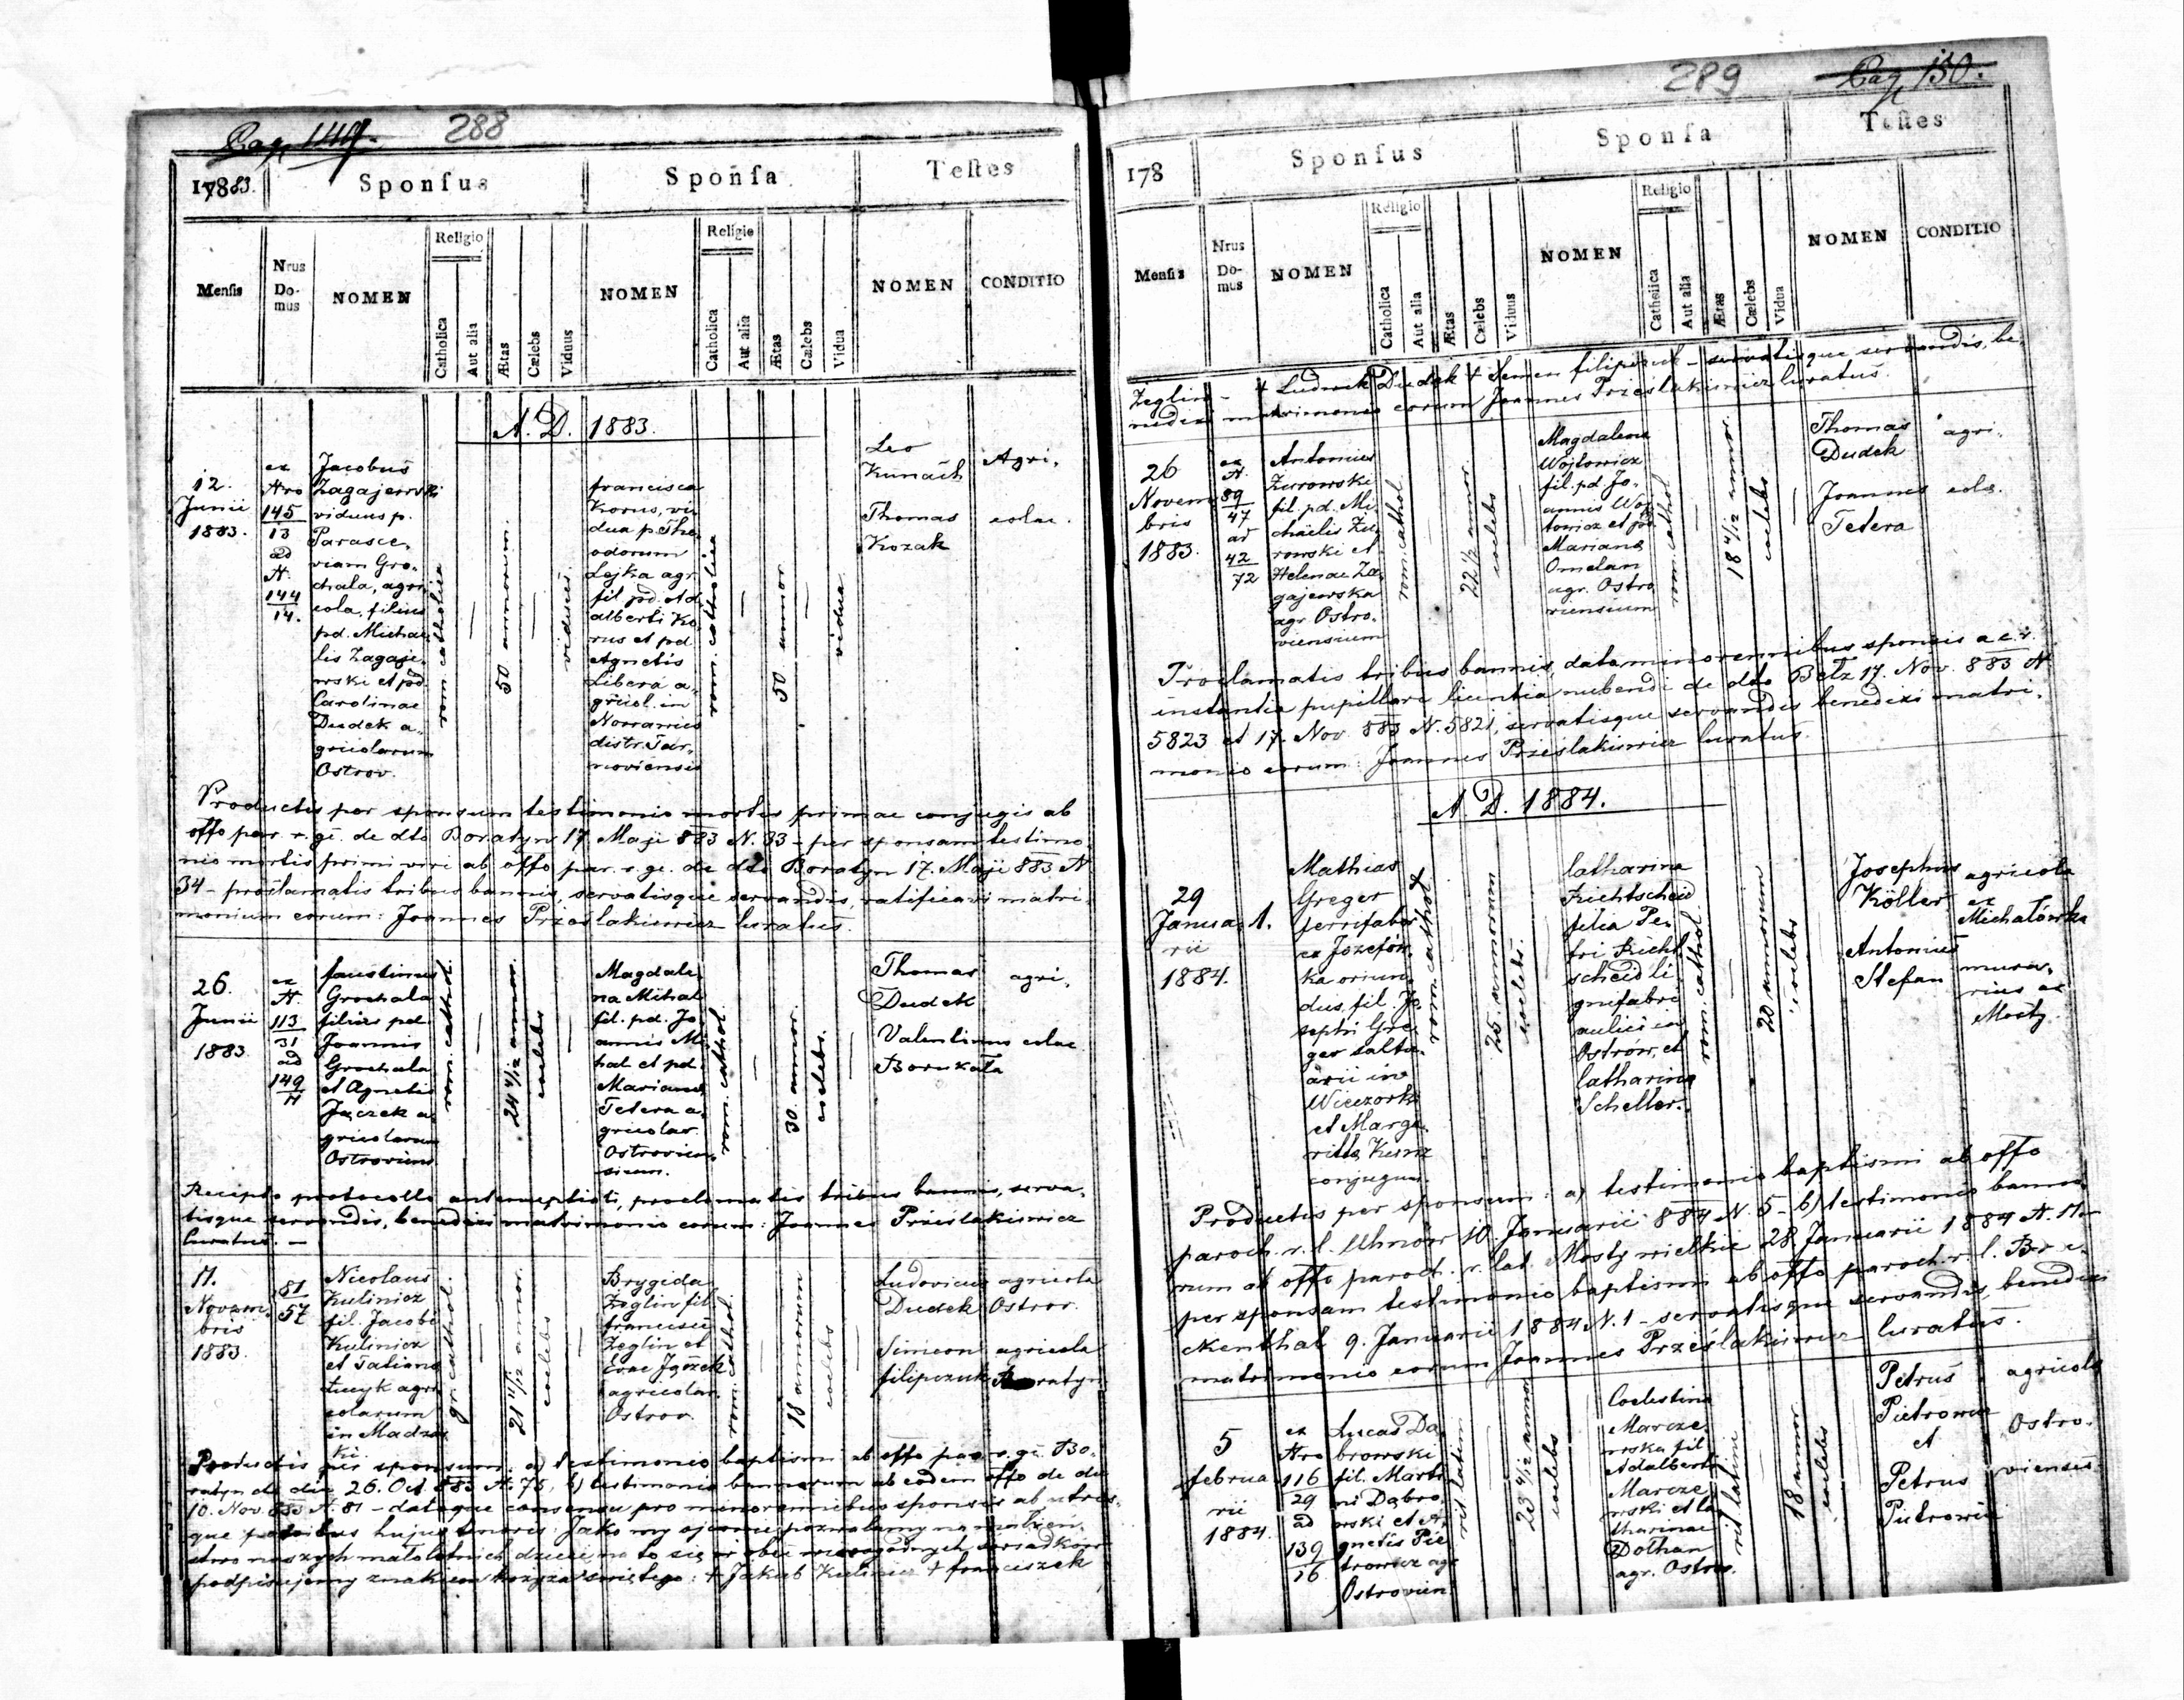 Pag. 149.
288
17883.
Sponsus
Sponsa
Testes
Mensis
Nrus Do-mus
NOMEN
Religio
Catholica
Aut alia
Ætas
Cælebs
Viduus
NOMEN
Religio
Catholica
Aut alia
Ætas
Cælebs
Vidua
NOMEN
CONDITIO
A. D. 1883.
12.
Junii
1883.
ex
Nro
145
13
ad
N.
144
14.
Jacobus
Zagajewski
viduus p.
Parasce,
viam Gro-
chala, agri,
cola, filius
pd. Michae,
lis Zagaje,
wski et pd.
Carolinae
Dudek a,
gricolarum
Ostrov.
rom. catholica
—
50 annorum.
—
viduus
francisca
Korus, vi,
dua p. The,
odorum
Lojka agr.
fil. pd. Ad,
alberti Ko,
rus et pd.
Agnetis
Libera a,
gricol. in
distr. Tar,
noviensis
rom. catholica
—
50 annor.
—
vidua
Leo
Kunach
Thomas
Kozak
Agri,
colae.
Productis per sponsum testimonio mortis primae conjugis ab
offo par. r. gr. de dto Boratyn 17. Maji 883 N. 33 - per sponsam testimo,
nio mortis primi viri ab offo par. r. gr. de dto Boratyn 17. Maji 883 N
34 - proclamatis tribus bannis, servatisque servandis, ratificavi matri,
monium eorum: Joannes Prześlakiewicz Curatus.
26.
Junii
1883.
ex
N.
113
31
ad
149
11
faustinus
Grochala
filius pd.
Joannis
Grochala
et Agnetis
Jączek a,
gricolarum
Ostroviens.
rom. cathol.
—
24 4/12 annor.
coelebs
—
Magdale,
na Mihal
fil. pd. Jo,
annis Mi,
hal et pd.
Mariana
Tetera a,
gricolar.
Ostrovien,
sium.
rom. cathol.
—
30 annor.
coelebs.
Thomas
Dudek
Valentinus
Borukała
agri,
colae
Recepto protocollo antenuptiali, proclamatis tribus bannis, serva,
tisque servandis, benedixi matrimonio eorum: Joannes Prześlakiewicz
Curatus. —
11.
Novem,
bris
1883.
81
57
Nicolaus
Kulinicz
fil. Jacobi
Kulinicz
et Tatiana
agri
colarum
in Madzar,
ki
gr. cathol.
—
21 11/12 annor.
coelebs
—
Brygida
Żeglin fil.
francisci
Żeglin et
Evae Jączek
agricolar.
Ostrov.
rom. cathol.
—
18 annorum
coelebs
Ludovicus
Dudek
Simeon
filipczuk
agricola
Ostrov.
agricola
Boratyn
Productis per sponsum: a) testimonio baptismi ab offo par. r. gr. Bo,
ratyn de die 26. Oct. 883 N. 75, b) testimonio bannorum ab eodem offo de dto
10. Nov 883 N. 81 - datoque consensu pro minorennibus sponsis ab utris,
que patribus hujus tenoris: Jako my ojcowie pozwalamy na małżeń,
stwo naszych małoletnich dzieci, na to się w obec wiarogodnych świadków
podpisujemy znakiem krzyża świętego: + Jakub Kulinicz + franciszek
289
Pag. 150.
178
Sponsus
Sponsa
Testes
Mensis
Nrus Do-mus
NOMEN
Religio
Catholica
Aut alia
Ætas
Cælebs
Viduus
NOMEN
Religio
Catholica
Aut alia
Ætas
Cælebs
Vidua
NOMEN
CONDITIO
Żeglin - + Ludwik Dudek + Semen filipczuk - servatisque servandis, be,
nedixi matrimonio eorum Joannes Prześlakiewicz Curatus.
26
Novem
bris
1883.
ex
N.
89
47
ad
42
72
Antonius
Żurowski
fil. pd. Mi,
chaelis Żu,
rowski et
Helenae Za,
gajewska
agr. Ostro,
viensium
rom. cathol.
22 1/2 annor.
coelebs
Magdalena
Wojtowicz
fil. pd. Jo,
annis Woj
towicz et pd.
Mariana
Omelan
agr. Ostro
viensium
rom. cathol.
18 4/12 annor.
coelebs
Thomas
Dudek
Joannes
Tetera
agri,
cola.
Proclamatis tribus bannis, data minorennibus sponsis a c. r.
instantia pupillari licentia nubendi de dto Bełz 17. Nov. 883 N
5823 et 17. Nov. 883 N. 5821, servatisque servandis benedixi matri,
monio eorum: Joannes Prześlakiewicz Curatus.
A. D. 1884.
29
Janua,
rii
1884.
1.
Mathias
Greger
ferrifaber
ex Józefów,
ka oriun,
dus, fil. Jo,
sephi Gre,
ger salta,
arii in
Wieczorki
et Marga,
ritta Kunz
conjugum.
rom. cathol.
25. annorum
coelebs.
Catharina
Richtscheid
filia Pe,
tri Richt
scheid li
gnifabri
aulici in
Ostrów, et
Catharina
Scheller.
rom. cathol.
20 annorum
coelebs
Josephus
Köller
Antonius
Stefan
agricola
ex
Michałówka
mura,
rius ex
Mosty
Productis per sponsum: a) testimonio baptismi ab offo
paroch. r. l. Uhnów 10. Januarii 884 N. 5 - b) testimonio banno,
rum ab offo paroch. r. lat. Mosty wielkie 28 Januarii 1884 N. 11 -
per sponsam testimonio baptismi ab offo paroch. r. l. Br e,
ckenthal 9. Januarii 1884 N. 1 - servatisque servandis, benedixi
matrimonio eorum Joannes Prześlakiewicz Curatus.
5
februa
rii
1884.
ex
Nro
116
29
ad
139
16
Lucas Da,
browski
fil. Marti
ni Dąbro,
wski et A,
gnetis Pie
trowicz agr.
Ostrovien.
rit. latini
23 4/12 annor.
coelebs
Coelestina
Marcze,
wska fil.
Adalberti
Marcze,
wski et Ca
tharinae
Dołhan
agr. Ostrov.
rit. latini
18 annor.
coelebs
Petrus
Pietrowicz
et
Petrus
Pietrowicz
agricola
Ostro,
viensis